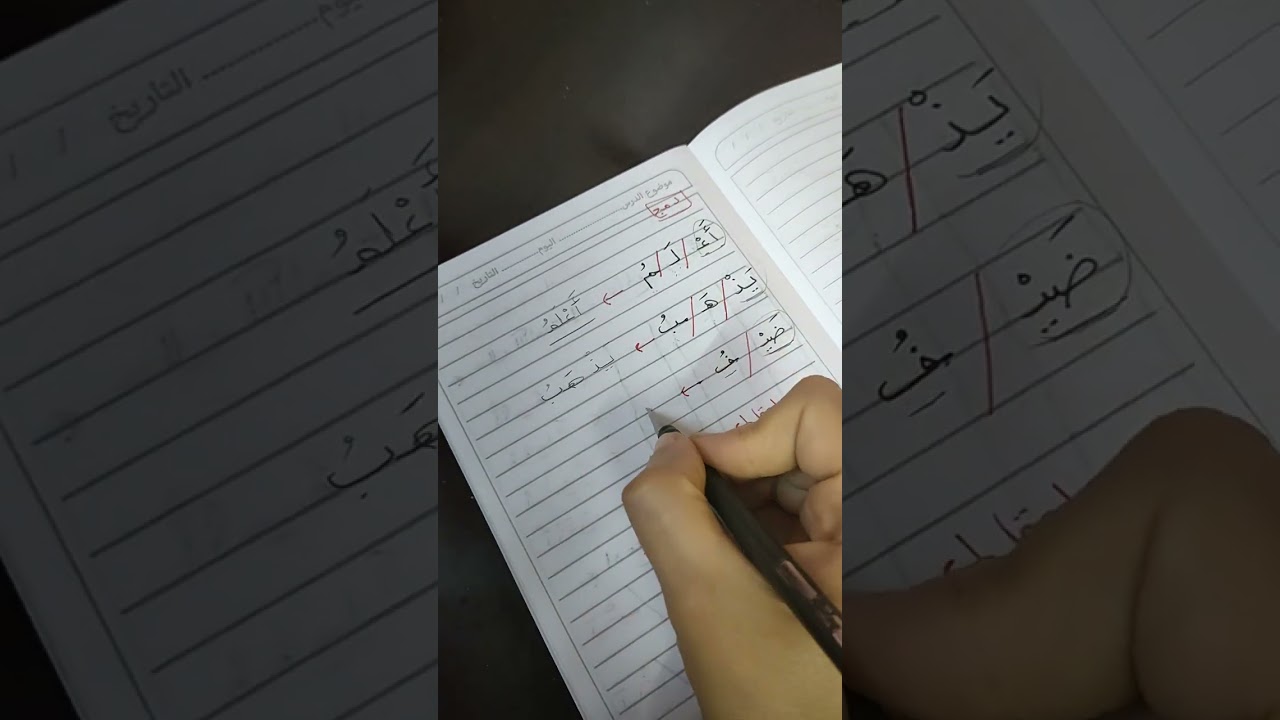 موضوع الدرس
اليوم التاريخ / /
دمج
أَعْ / لَـ / ـمُ ← أَعْلَمُ
يَذْ / هَـ / ـبُ ← يَذْهَبُ
ضَيْـ / ـفُ ←